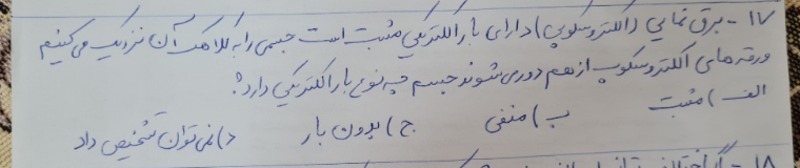 ۱۷ - برق نمایی (الکتروسکوپی) دارای بار الکتریکی مثبت است جسمی را به کلاهک آن نزدیک می کنیم
ورقه های الکتروسکوپ از هم دور می شوند جسم چه نوع بار الکتریکی دارد؟
الف) مثبت ب) منفی ج) بدون بار د) نمی توان تشخیص داد
۱۸ -